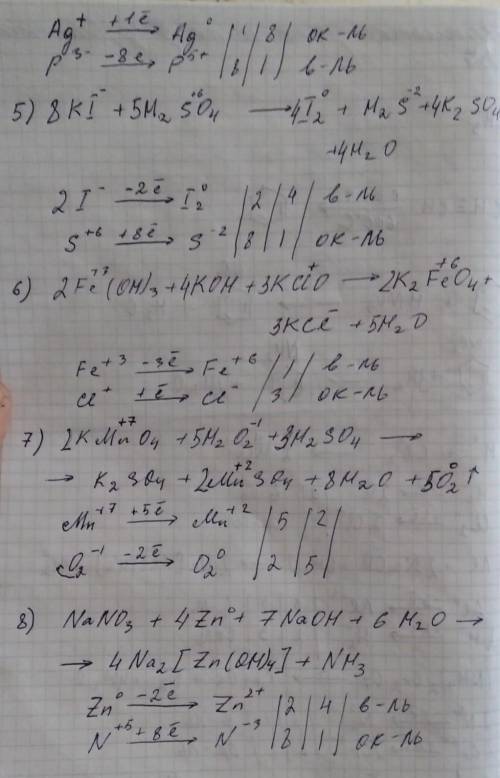 Ag⁺ +1ē → Ag⁰ | 1 | 8 | ок-ль
P³⁻ -8ē → P⁵⁺ | 8 | 1 | в-ль
5) 8KI⁻ + 5H₂S⁺⁶O₄ → 4I₂⁰ + H₂S⁻² + 4K₂SO₄
+4H₂O
2I⁻ -2ē → I₂⁰ | 2 | 4 | в-ль
S⁺⁶ +8ē → S⁻² | 8 | 1 | ок-ль
6) 2Fe⁺³(OH)₃ + 4KOH + 3KCl⁺O → 2K₂Fe⁺⁶O₄ +
3KCl⁻ + 5H₂O
Fe⁺³ -3ē → Fe⁺⁶ | 1 | в-ль
Cl⁺ +ē → Cl⁻ | 3 | ок-ль
7) 2KMn⁺⁷O₄ + 5H₂O₂⁻¹ + 3H₂SO₄ →
→ K₂SO₄ + 2Mn⁺²SO₄ + 8H₂O + 5O₂⁰↑
Mn⁺⁷ +5ē → Mn⁺² | 5 | 2 |
O₂⁻¹ -2ē → O₂⁰ | 2 | 5 |
8) NaNO₃ + 4Zn⁰ + 7NaOH + 6H₂O →
→ 4Na₂[Zn(OH)₄] + NH₃
Zn⁰ -2ē → Zn²⁺ | 2 | 4 | в-ль
N⁺⁵ +8ē → N⁻³ | 8 | 1 | ок-ль